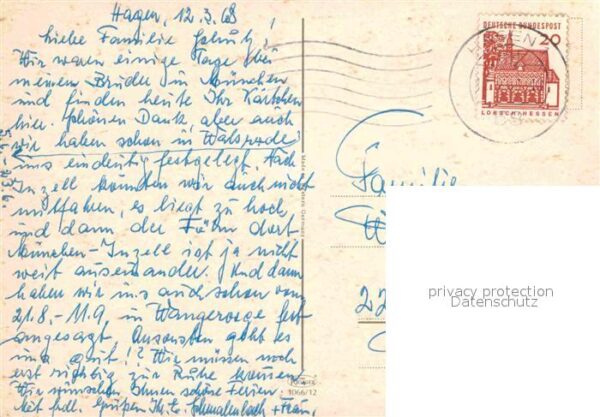 Hagen, 12.3.68
Liebe Familie
Wir waren einige Tage bei
meinem Bruder in München
und finden heute Ihr Kärtchen
hier. Schönen Dank, aber auch
wir haben schon in Walsrode
uns eindeutig festgelegt. Nach
Inzell könnten wir auch nicht
mitfahren, es liegt zu hoch
und dann der Föhn dort
München-Inzell ist ja nicht
weit auseinander. Und dann
haben wir uns auch schon vom
21.8.-11.9. in Wangerooge fest
angesagt. Ansonsten geht es
uns gut!? Wir müssen noch
erst richtig zur Ruhe kommen.
Wir wünschen Ihnen schöne Ferien.
Mit frdl. Grüßen Ihr E. Schmalenbach + Frau.
1066/12
DEUTSCHE BUNDESPOST
20
LORSCH/HESSEN
HAGEN
Familie
W
22
privacy protection
Datenschutz